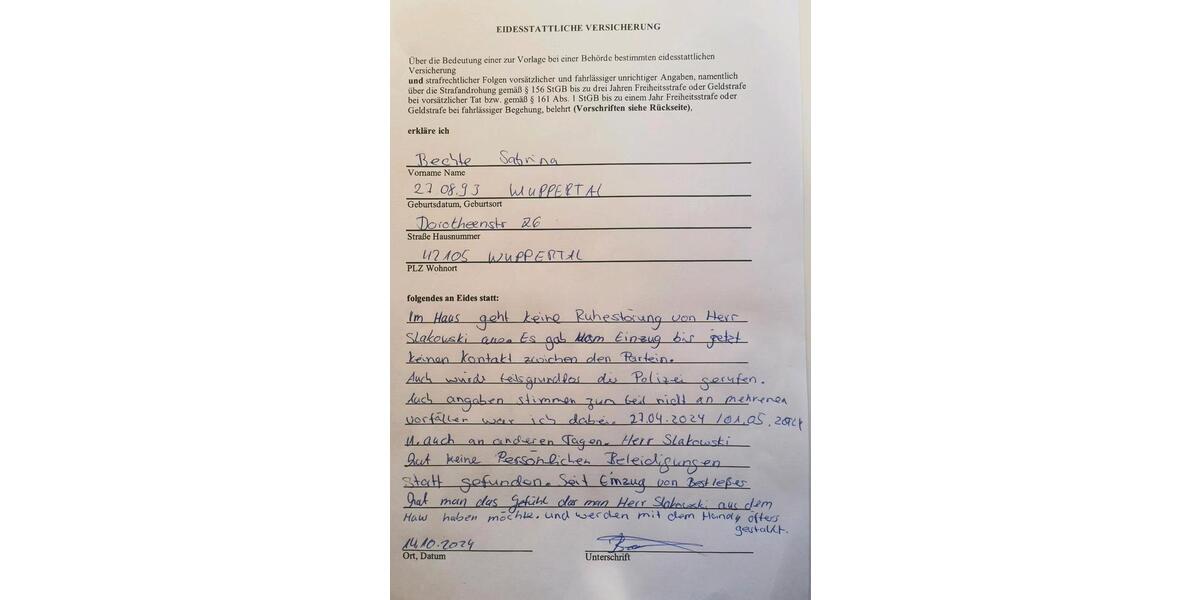 EIDESSTATTLICHE VERSICHERUNG
Über die Bedeutung einer zur Vorlage bei einer Behörde bestimmten eidesstattlichen
Versicherung
und strafrechtlicher Folgen vorsätzlicher und fahrlässiger unrichtiger Angaben, namentlich
über die Strafandrohung gemäß § 156 StGB bis zu drei Jahren Freiheitsstrafe oder Geldstrafe
bei vorsätzlicher Tat bzw. gemäß § 161 Abs. 1 StGB bis zu einem Jahr Freiheitsstrafe oder
Geldstrafe bei fahrlässiger Begehung, belehrt (Vorschriften siehe Rückseite),
erkläre ich
Bechte Sabrina
Vorname Name
27 08.93 WUPPERTAL
Geburtsdatum, Geburtsort
Dorotheenstr 26
Straße Hausnummer
42105 WUPPERTAL
PLZ Wohnort
folgendes an Eides statt:
Im Haus geht keine Ruhestörung von Herr
Slakowski aus. Es gab Einzug bis jetzt
keinen Kontakt zwichen den Partein.
Auch wurde teilsgrundlos die Polizei gerufen.
Auch angaben stimmen zum teil nicht an mehrenen
vorfäller war ich dabei. 27.04.2024 / 01.05.2024
u. auch an anderen Tagen. Herr Slakowski
hat keine Persönlichen Beleidigungen
statt gefunden. Seit Einzug von
hat man das gefühl das man Herr Slakowski aus dem
Haus haben möchte. und werden mit dem Handy öfters
gestalkt.
14.10.2024
Ort, Datum
Unterschrift